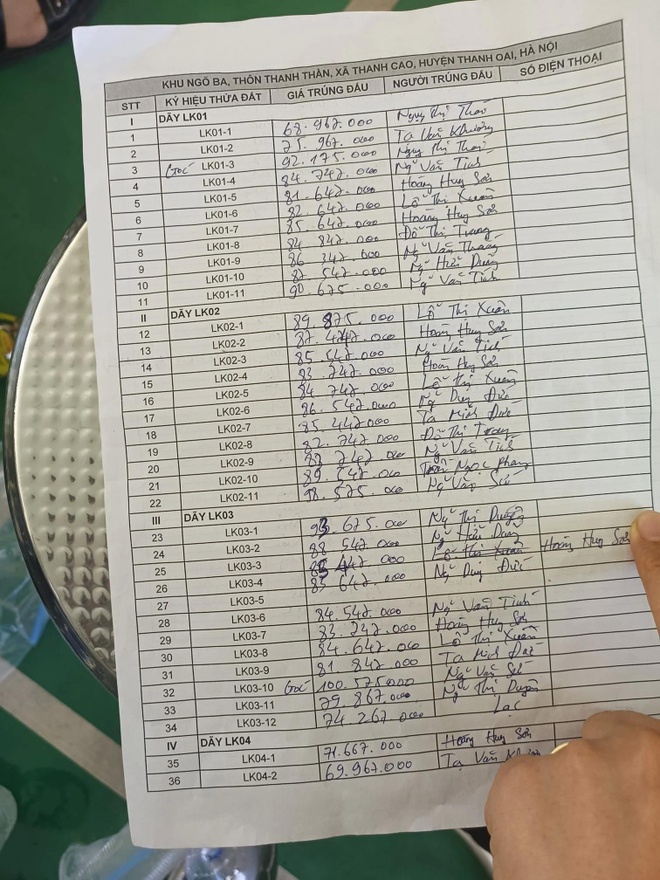 KHU NGÕ BA, THÔN THANH THẦN, XÃ THANH CAO, HUYỆN THANH OAI, HÀ NỘI
STT KÝ HIỆU THỬA ĐẤT GIÁ TRÚNG ĐẤU NGƯỜI TRÚNG ĐẤU SỐ ĐIỆN THOẠI
I DÃY LK01
1 LK01-1 68.967.000
2 LK01-2 75.967.000 Tạ Văn Khương
3 Góc LK01-3 92.175.000
4 LK01-4 84.742.000 Ng Văn Tính
5 LK01-5 81.642.000 Hoàng Huy Sơn
6 LK01-6 82.642.000 Lỗ Thị Xuân
7 LK01-7 85.642.000 Hoàng Huy Sơn
8 LK01-8 84.842.000 Đỗ Thị Trang
9 LK01-9 86.342.000 Ng Văn
10 LK01-10 .542.000 Ng Hữu
11 LK01-11 90.675.000 Ng Văn Tính
II DÃY LK02
12 LK02-1 89.875.000 Lỗ Thị Xuân
13 LK02-2 Hoàng Huy Sơn
14 LK02-3 85.542.000 Ng Văn Tính
15 LK02-4 83.742.000 Hoàng Huy Sơn
16 LK02-5 84.742.000 Lỗ Thị Xuân
17 LK02-6 86.542.000 Ng Duy Đức
18 LK02-7 85.442.000 Tạ Minh Đức
19 LK02-8 82.742.000 Đỗ Thị Trang
20 LK02-9 .742.000 Ng Văn Tính
21 LK02-10 89.542.000 Ngọc
22 LK02-11 98.575.000 Ng Văn
III DÃY LK03
23 LK03-1 93.675.000 Ng Thị Duyên
24 LK03-2 88.542.000 Ng Hữu
25 LK03-3 Lỗ Thị Xuân Hoàng Huy Sơn
26 LK03-4 83.642.000 Ng Duy Đức
27 LK03-5
28 LK03-6 84.542.000 Ng Văn Tính
29 LK03-7 83.742.000 Hoàng Huy Sơn
30 LK03-8 84.642.000 Lỗ Thị Xuân
31 LK03-9 81.842.000 Tạ Minh Đức
32 LK03-10 Góc 100.575.000 Ng Văn
33 LK03-11 79.867.000 Ng Thị Duyên
34 LK03-12 74.267.000 Lạc
IV DÃY LK04
35 LK04-1 71.667.000 Hoàng Huy Sơn
36 LK04-2 69.967.000 Tạ Văn